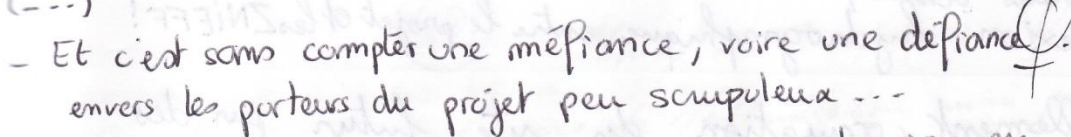 (---)
- Et c'est sans compter une méfiance, voire une défiance.
envers les porteurs du projet peu scrupuleux ---